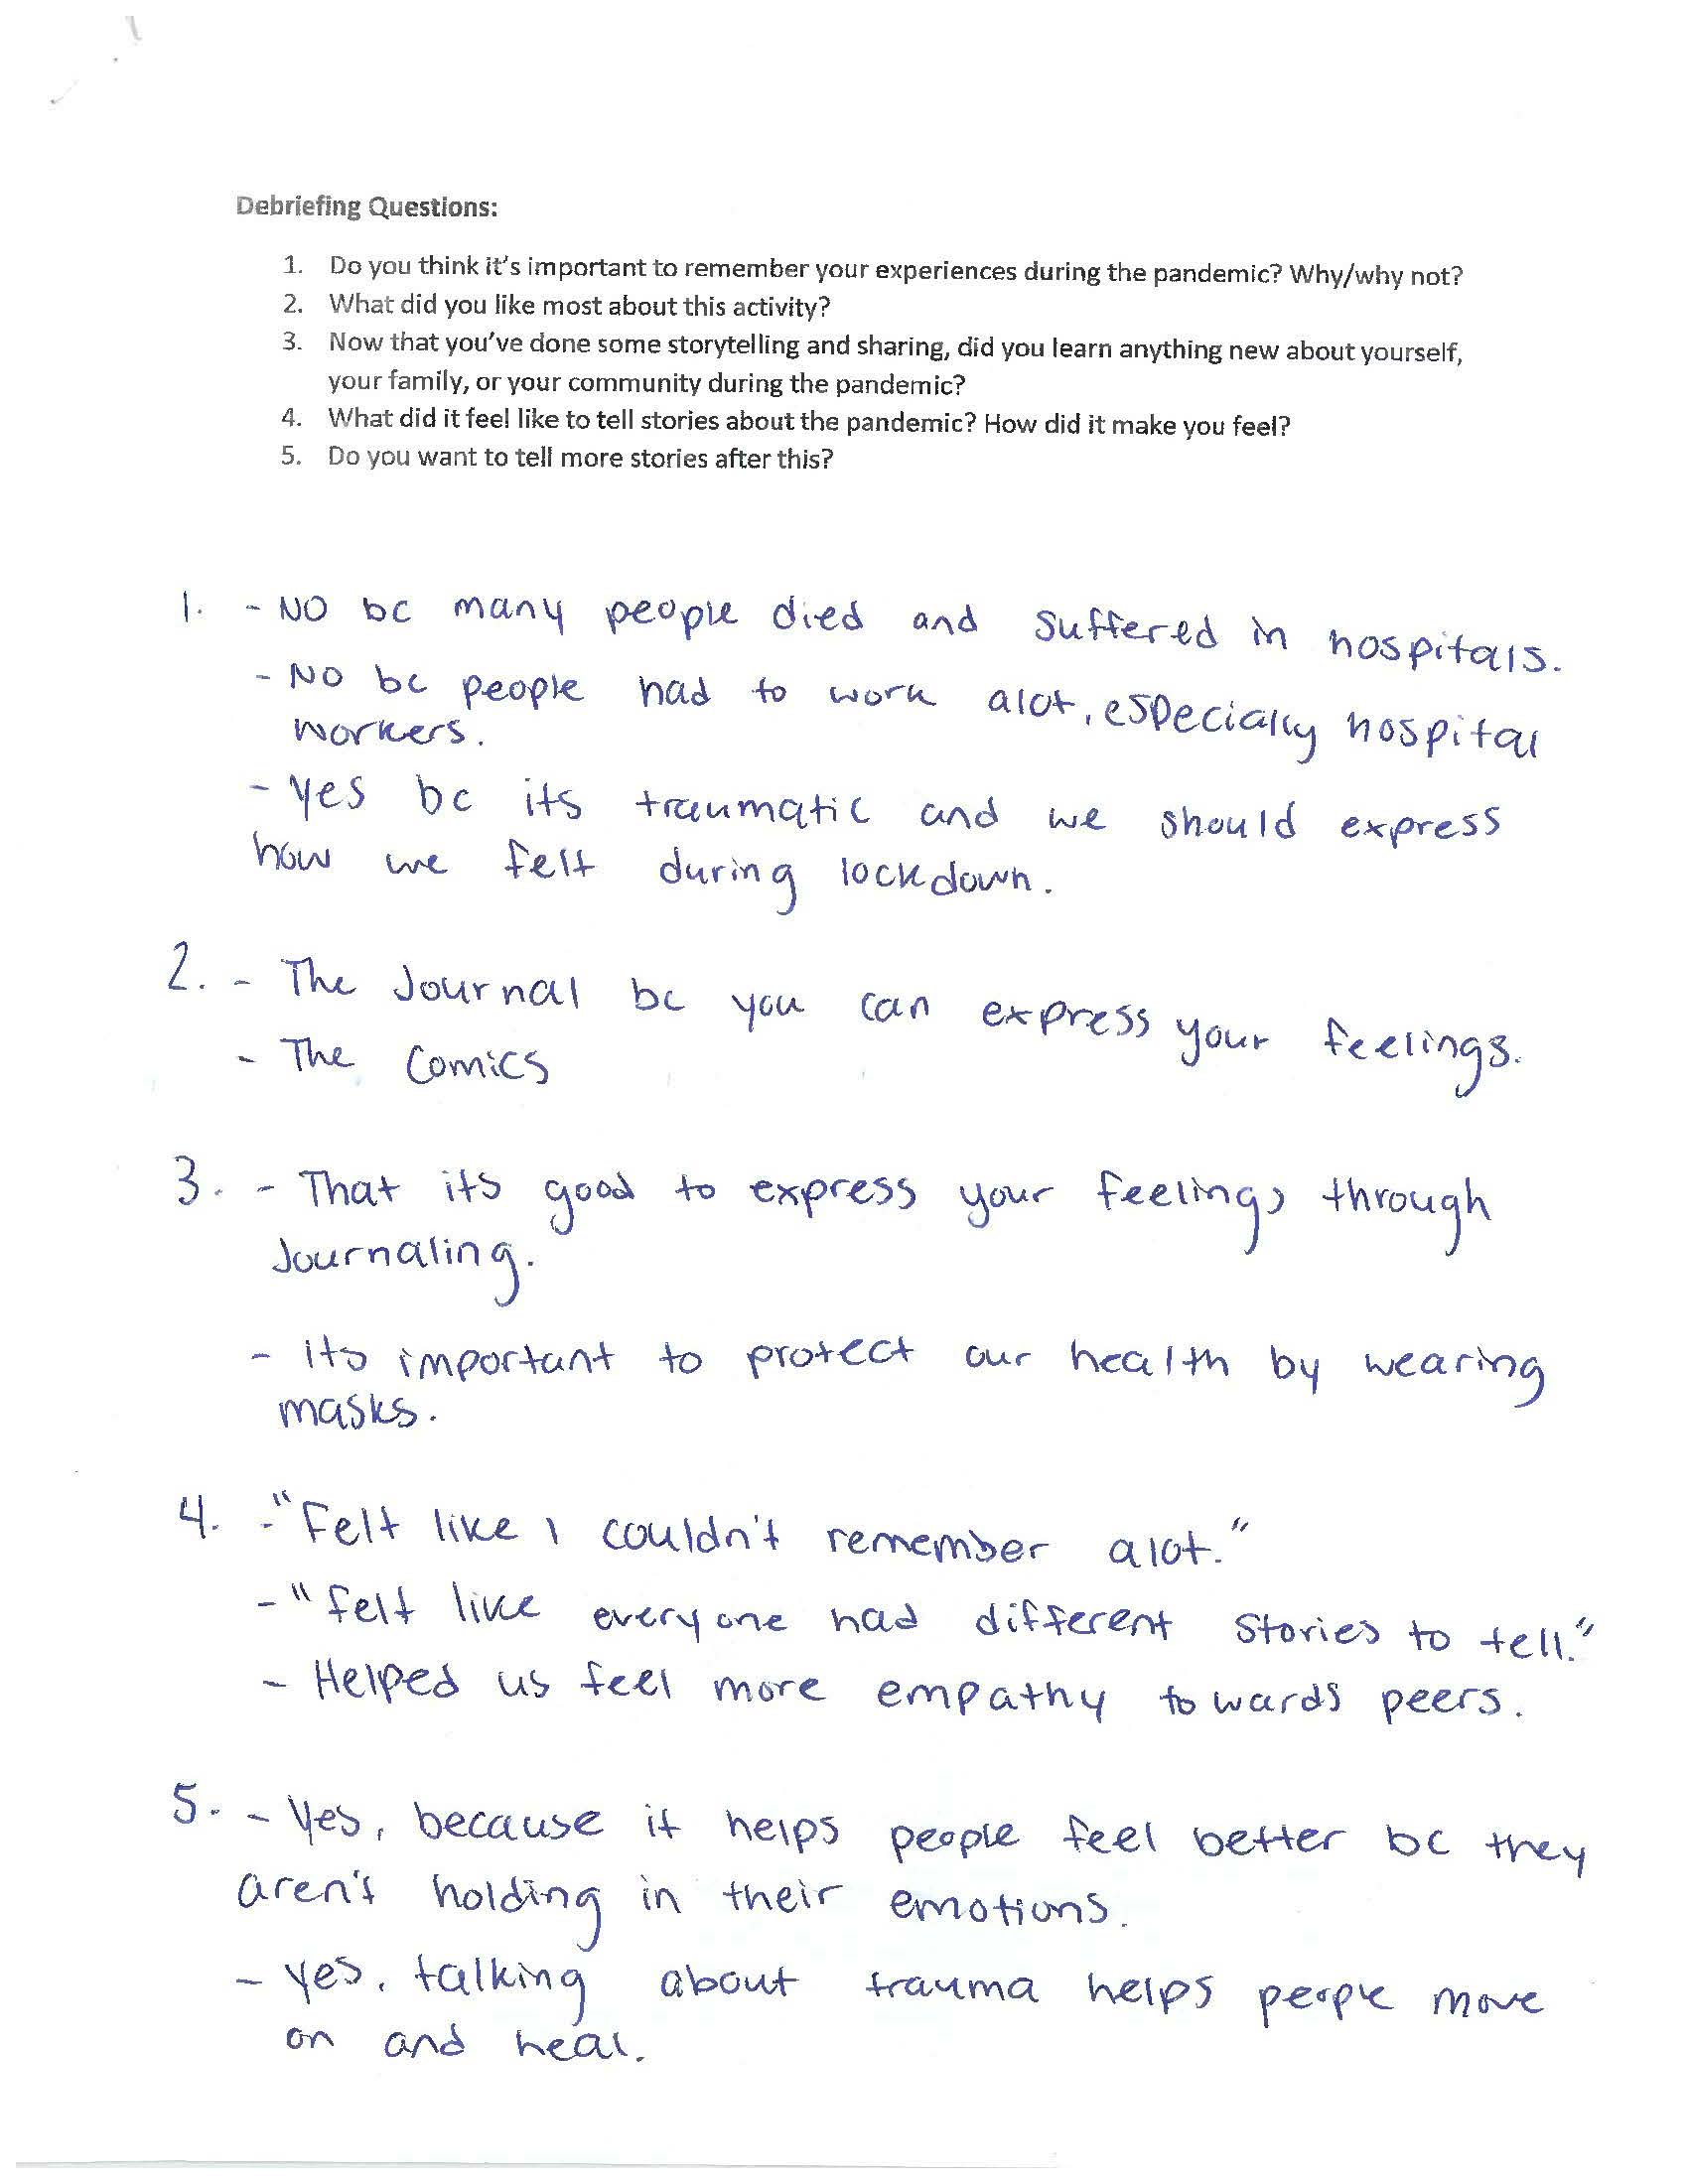 Debriefing Questions:
1. Do you think it's important to remember your experiences during the pandemic? Why/why not?
2. What did you like most about this activity?
3. Now that you've done some storytelling and sharing, did you learn anything new about yourself,
your family, or your community during the pandemic?
4. What did it feel like to tell stories about the pandemic? How did it make you feel?
5. Do you want to tell more stories after this?
1. - NO bc many people died and suffered in hospitals.
- NO bc people had to work alot, especially hospital
workers.
- Yes bc its traumatic and we should express
how we felt during lockdown.
2. - The Journal bc you can express your feelings.
- The Comics
3. - That its good to express your feelings through
Journaling.
- its important to protect our health by wearing
masks.
4. - "Felt like I couldn't remember alot."
- "felt like everyone had different stories to tell."
- Helped us feel more empathy towards peers.
5. - Yes, because it helps people feel better bc they
aren't holding in their emotions.
- Yes, talking about trauma helps people move
on and heal.